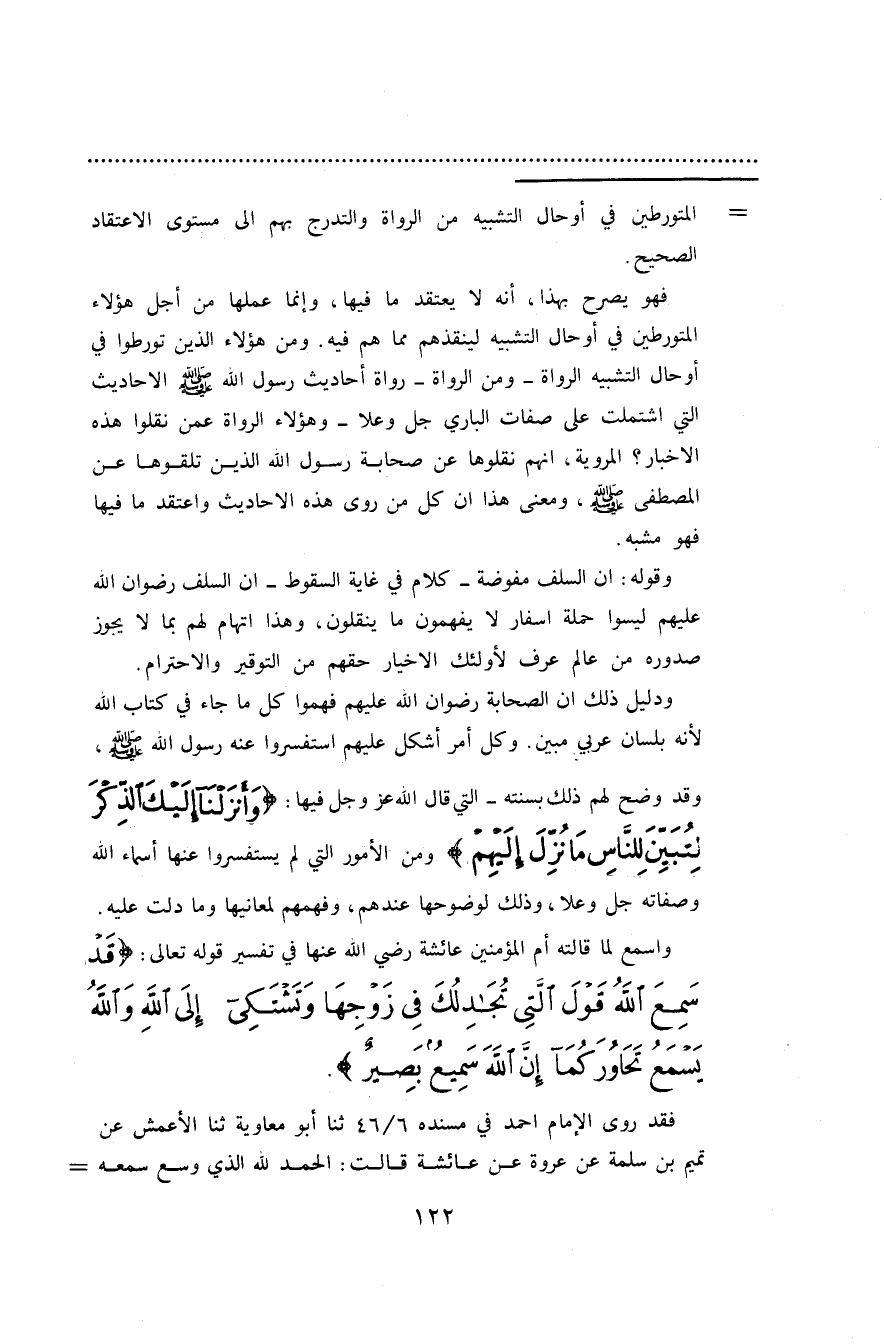 = المتورطين في أوحال التشبيه من الرواة والتدرج بهم الى مستوى الاعتقاد
الصحيح.
فهو يصرح بهذا، أنه لا يعتقد ما فيها، وإنما عملها من أجل هؤلاء
المتورطين في أوحال التشبيه لينقذهم مما هم فيه. ومن هؤلاء الذين تورطوا في
أوحال التشبيه الرواة - ومن الرواة - رواة أحاديث رسول الله ﷺ الاحاديث
التي اشتملت على صفات الباري جل وعلا - وهؤلاء الرواة عمن نقلوا هذه
الاخبار؟ المروية، انهم نقلوها عن صحابة رسول الله الذين تلقوها عن
المصطفى ﷺ، ومعنى هذا ان كل من روى هذه الاحاديث واعتقد ما فيها
فهو مشبه.
وقوله: ان السلف مفوضة - كلام في غاية السقوط - ان السلف رضوان الله
عليهم ليسوا حملة اسفار لا يفهمون ما ينقلون، وهذا اتهام لهم بما لا يجوز
صدوره من عالم عرف لأولئك الاخيار حقهم من التوقير والاحترام.
ودليل ذلك ان الصحابة رضوان الله عليهم فهموا كل ما جاء في كتاب الله
لأنه بلسان عربي مبين. وكل أمر أشكل عليهم استفسروا عنه رسول الله ﷺ،
وقد وضح لهم ذلك بسنته - التي قال الله عز وجل فيها: ﴿وَأَنزَلْنَآ إِلَيْكَ ٱلذِّكْرَ
لِتُبَيِّنَ لِلنَّاسِ مَا نُزِّلَ إِلَيْهِمْ﴾ ومن الأمور التي لم يستفسروا عنها أسماء الله
وصفاته جل وعلا، وذلك لوضوحها عندهم، وفهمهم لمعانيها وما دلت عليه.
واسمع لما قالته أم المؤمنين عائشة رضي الله عنها في تفسير قوله تعالى: ﴿قَدْ
سَمِعَ ٱللَّهُ قَوْلَ ٱلَّتِي تُجَٰدِلُكَ فِي زَوْجِهَا وَتَشْتَكِيٓ إِلَى ٱللَّهِ وَٱللَّهُ
يَسْمَعُ تَحَاوُرَكُمَآ إِنَّ ٱللَّهَ سَمِيعٌۢ بَصِيرٌ﴾.
فقد روى الإمام احمد في مسنده ٤٦/٦ ثنا أبو معاوية ثنا الأعمش عن
تميم بن سلمة عن عروة عن عائشة قالت: الحمد لله الذي وسع سمعه =
١٢٢